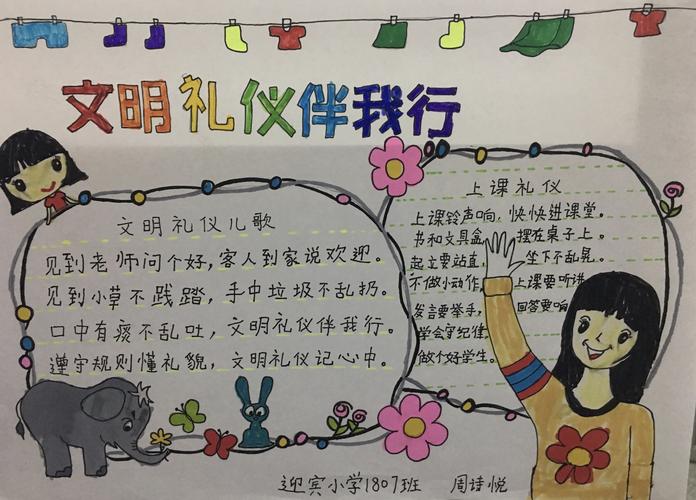 文明礼仪伴我行
文明礼仪儿歌
见到老师问个好，客人到家说欢迎。
见到小草不践踏，手中垃圾不乱扔。
口中有痰不乱吐，文明礼仪伴我行。
遵守规则懂礼貌，文明礼仪记心中。
上课礼仪
上课铃声响，快快进课堂。
书和文具盒，摆在桌子上。
起立要站直，坐下不乱晃。
不做小动作，上课要听讲
发言要举手，回答要响
学会守纪律
做个好学生。
迎宾小学1807班 周诗悦